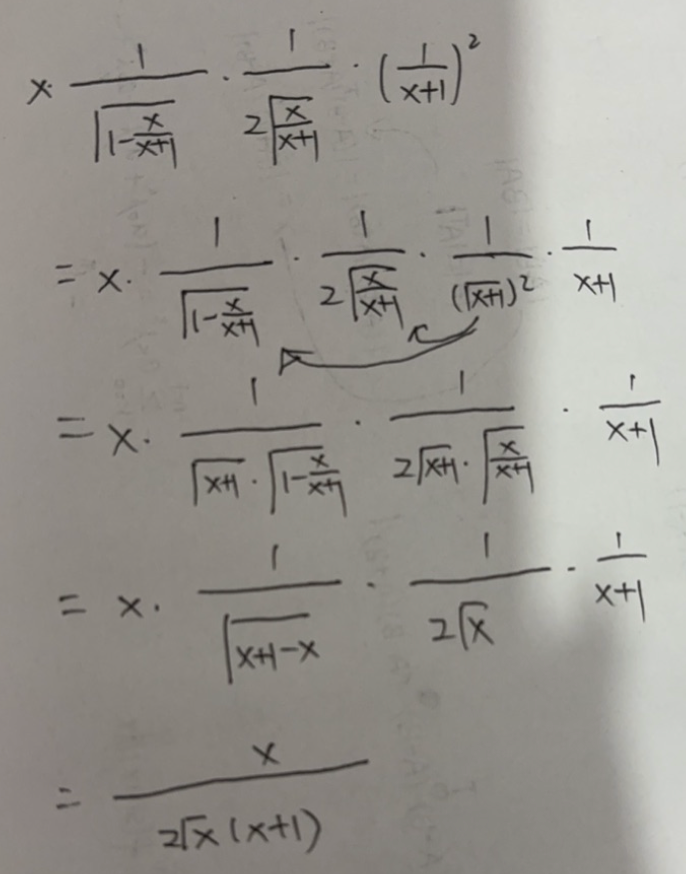 x · \frac{1}{\sqrt{1-\frac{x}{x+1}}} · \frac{1}{2\sqrt{\frac{x}{x+1}}} · (\frac{1}{x+1})^2
= x · \frac{1}{\sqrt{1-\frac{x}{x+1}}} · \frac{1}{2\sqrt{\frac{x}{x+1}}} · \frac{1}{(\sqrt{x+1})^2} · \frac{1}{x+1}
= x · \frac{1}{\sqrt{x+1} · \sqrt{1-\frac{x}{x+1}}} · \frac{1}{2\sqrt{x+1} · \sqrt{\frac{x}{x+1}}} · \frac{1}{x+1}
= x · \frac{1}{\sqrt{x+1-x}} · \frac{1}{2\sqrt{x}} · \frac{1}{x+1}
= \frac{x}{2\sqrt{x}(x+1)}